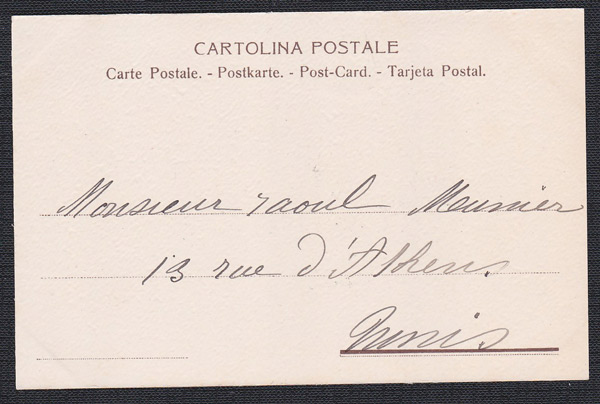 CARTOLINA POSTALE
Carte Postale. - Postkarte. - Post-Card. - Tarjeta Postal.
Monsieur raoul Meunier
13 rue d'Athens.
Tunis